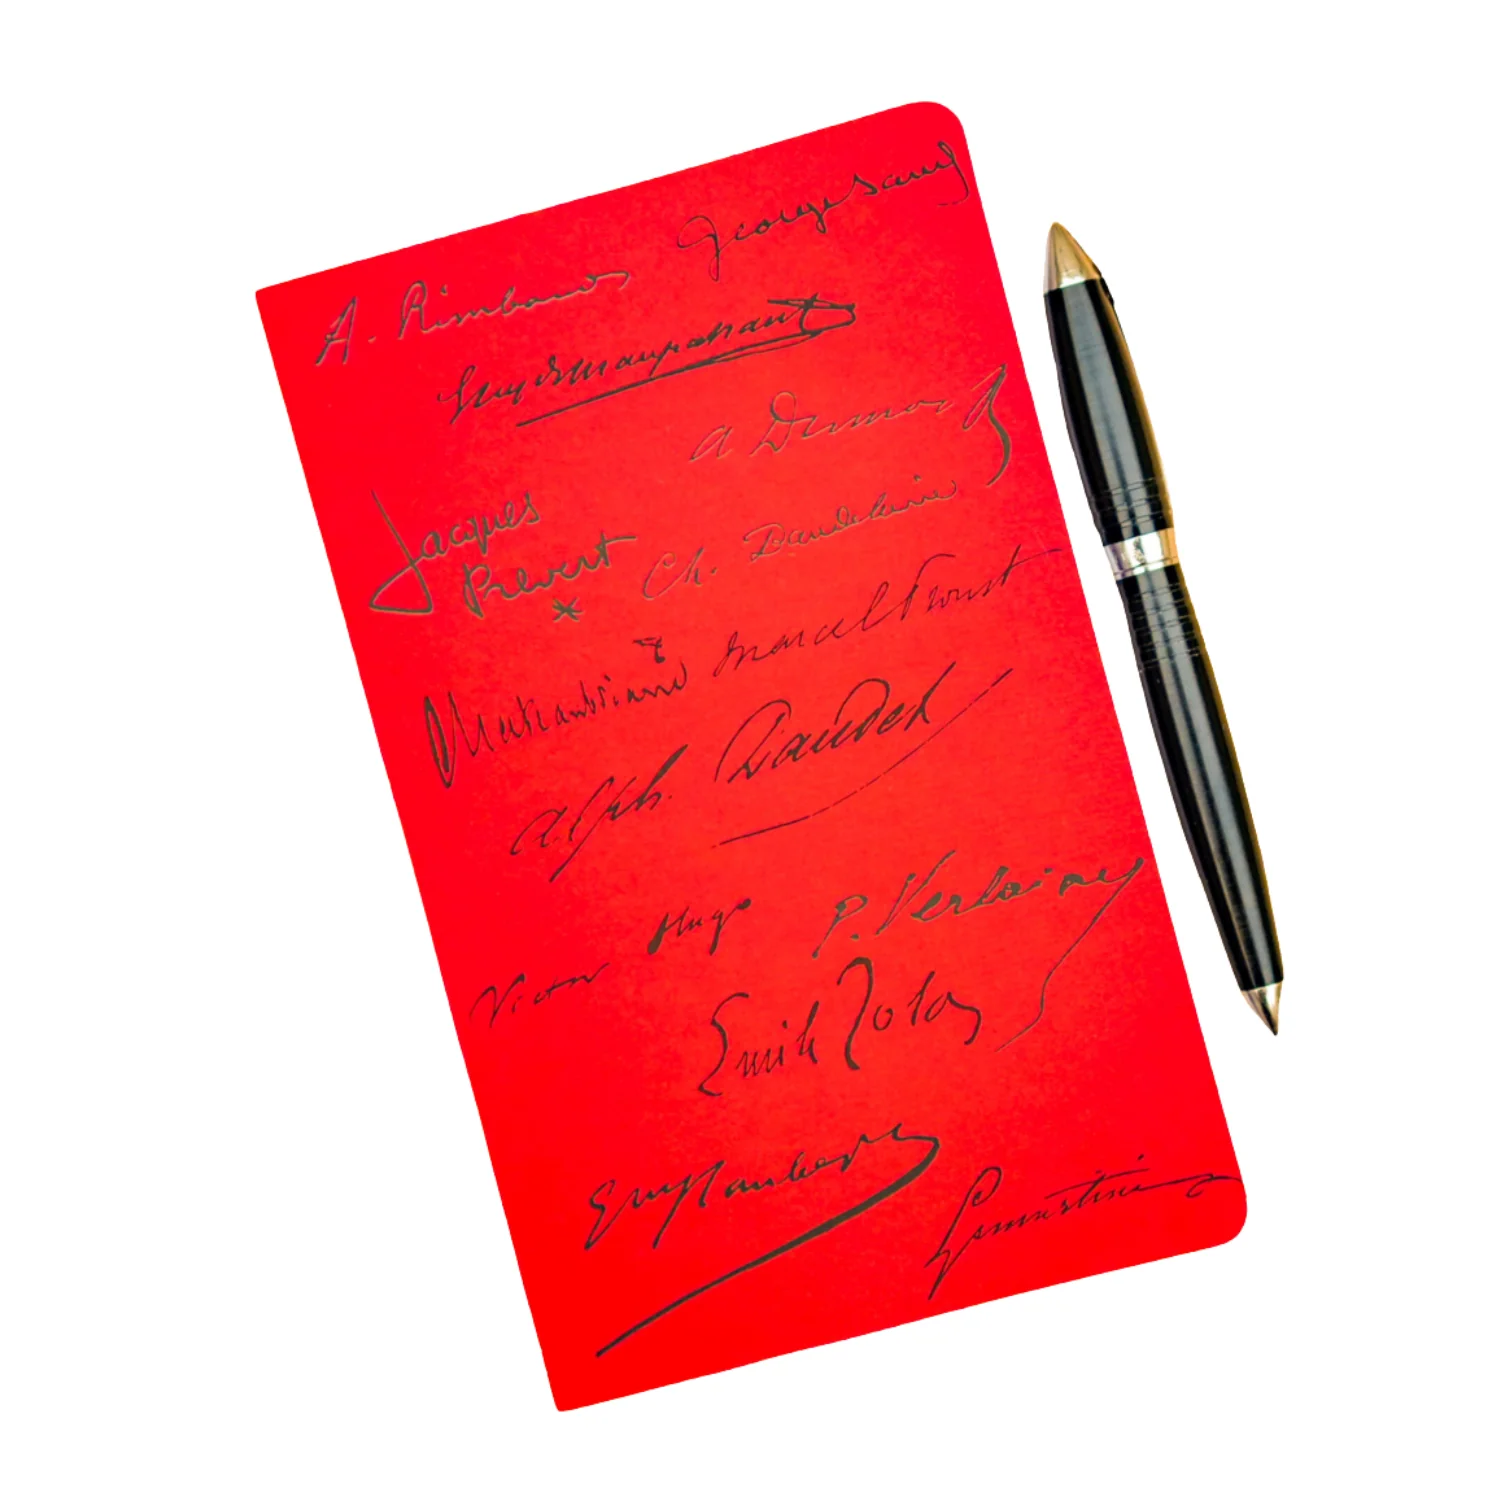 A. Rimbaud
George Sand
Guy de Maupassant
A Dumas
Jacques
Prévert
Ch. Baudelaire
Marcel Proust
Chateaubriand
Alph. Daudet
Victor Hugo
P. Verlaine
Emile Zola
Gve Flaubert
Lamartine